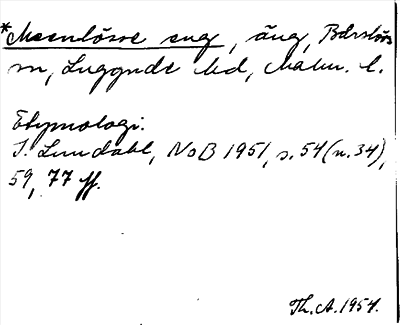 *Meenlösse eng, äng, Bärslövs
sn, Luggude hd, Malm. l.
Etymologi:
I. Lundahl, NoB 1951, s. 54 (n. 34),
59, 77 ff.
Th. A. 1954.